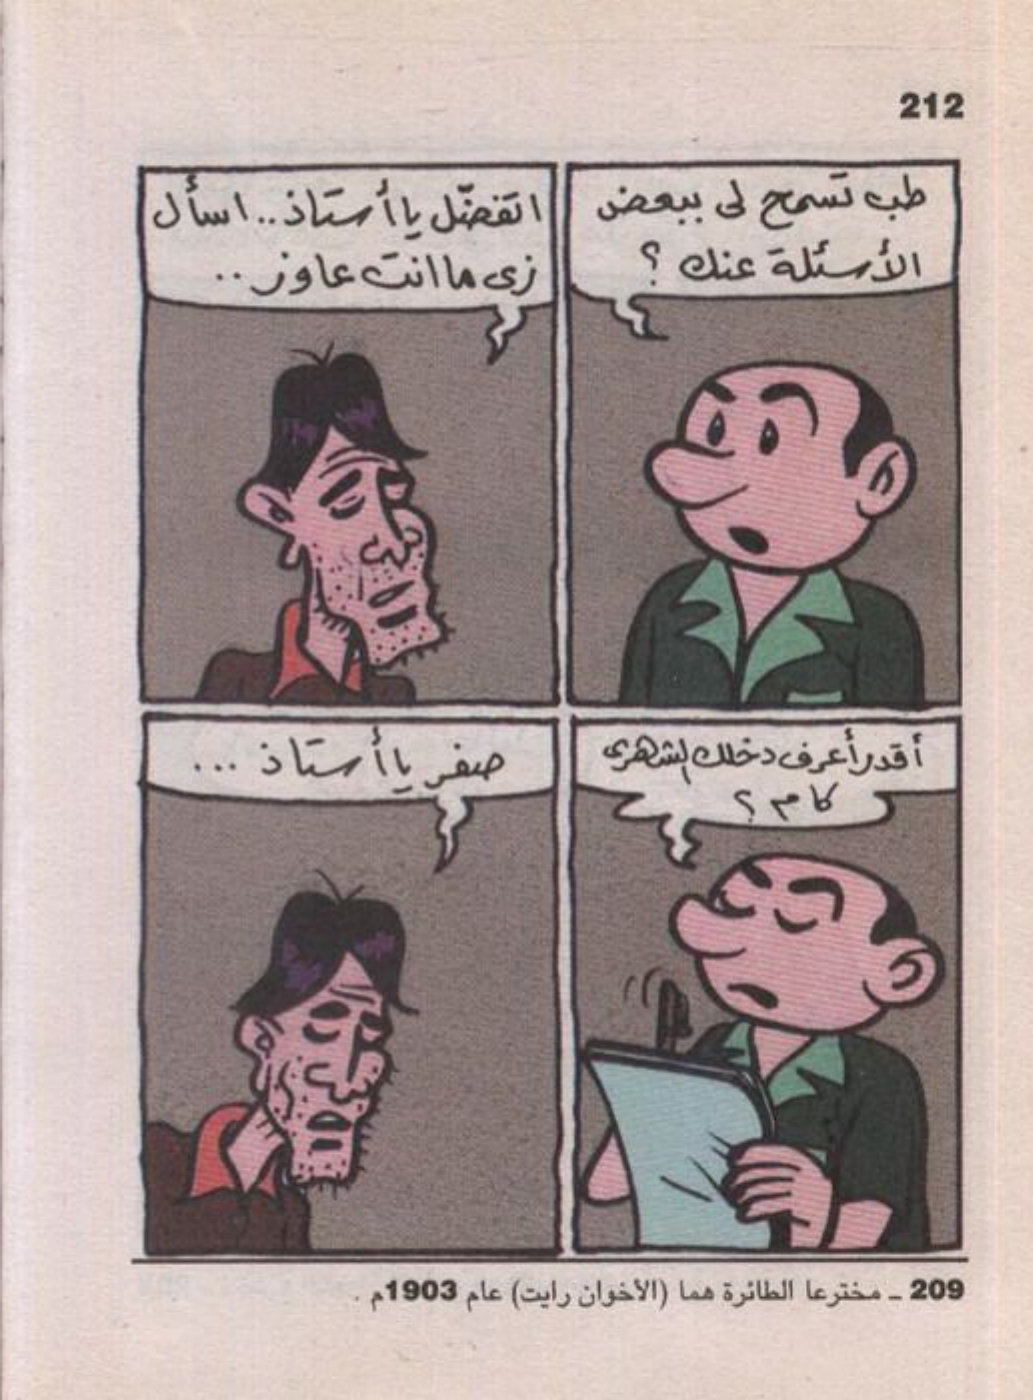 212
طب تسمح لى ببعض
الأسئلة عنك ؟
اتفضّل يا أستاذ.. اسأل
زى ما انت عاوز ..
أقدر أعرف دخلك الشهرى
كام ؟
صفر يا أستاذ ...
209 ـ مخترعا الطائرة هما (الأخوان رايت) عام 1903م .